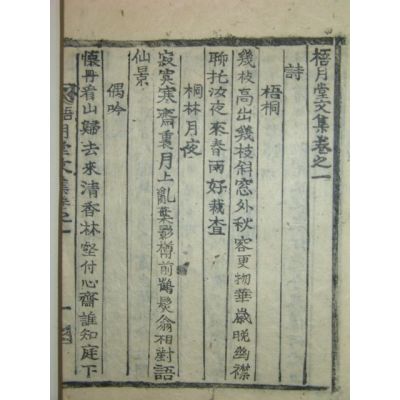 梧月堂文集卷之一
詩
梧桐
幾枝高出幾枝斜窓外秋容更物華歲晚幽襟
聊托汝夜來春雨好栽査
桐林月夜
寂寞寒齋裏月上亂葉影樽前鶴髮翁相對語
仙景
偶吟
懷丹看山歸去來清香林壑付心齋誰知庭下
梧月堂文集卷之一
一